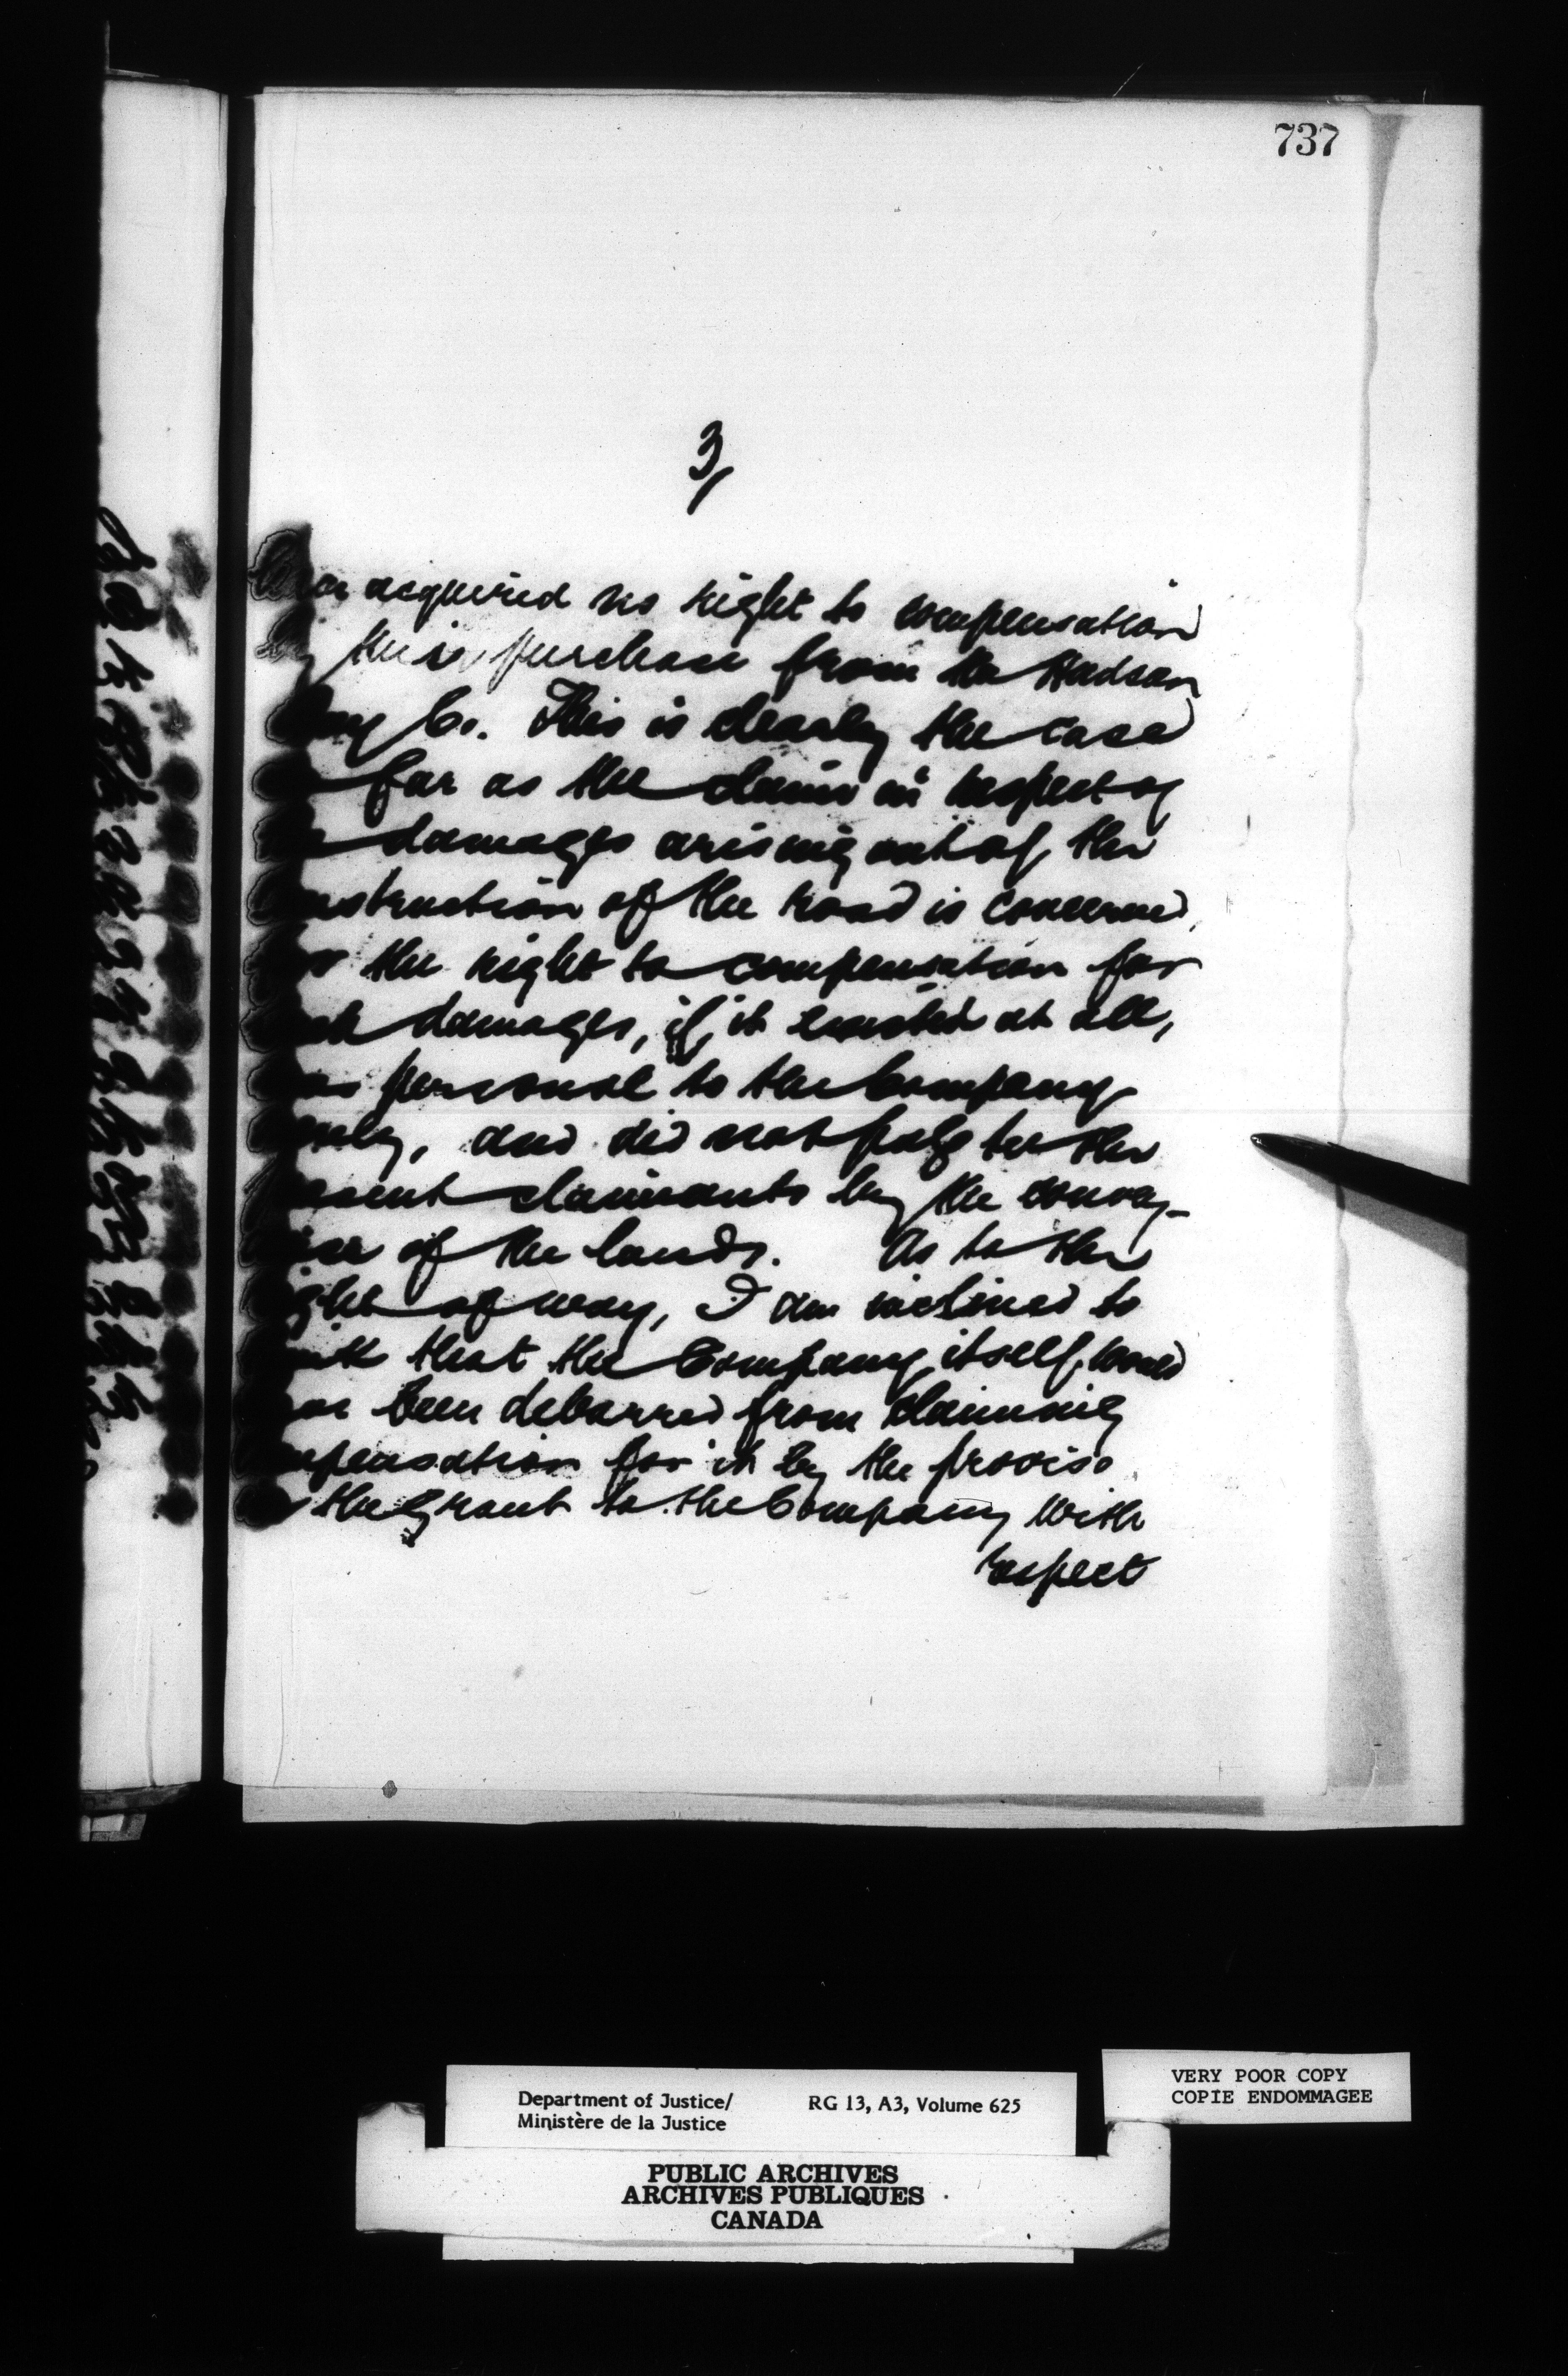 737
3/
have acquired no right to compensation
by their purchase from the Hudson
Bay Co. This is clearly the case
so far as the claim in respect of
the damages arising out of the
construction of the road is concerned,
for the right to compensation for
such damages, if it existed at all,
was personal to the Company
only, and did not pass to the
present claimants by the convey-
ance of the lands. As to the
right of way, I am inclined to
think that the Company itself, would
have been debarred from claiming
compensation for it by the proviso
the grant to the Company with
respect
Department of Justice/ RG 13, A3, Volume 625
Ministère de la Justice
VERY POOR COPY
COPIE ENDOMMAGEE
PUBLIC ARCHIVES
ARCHIVES PUBLIQUES
CANADA